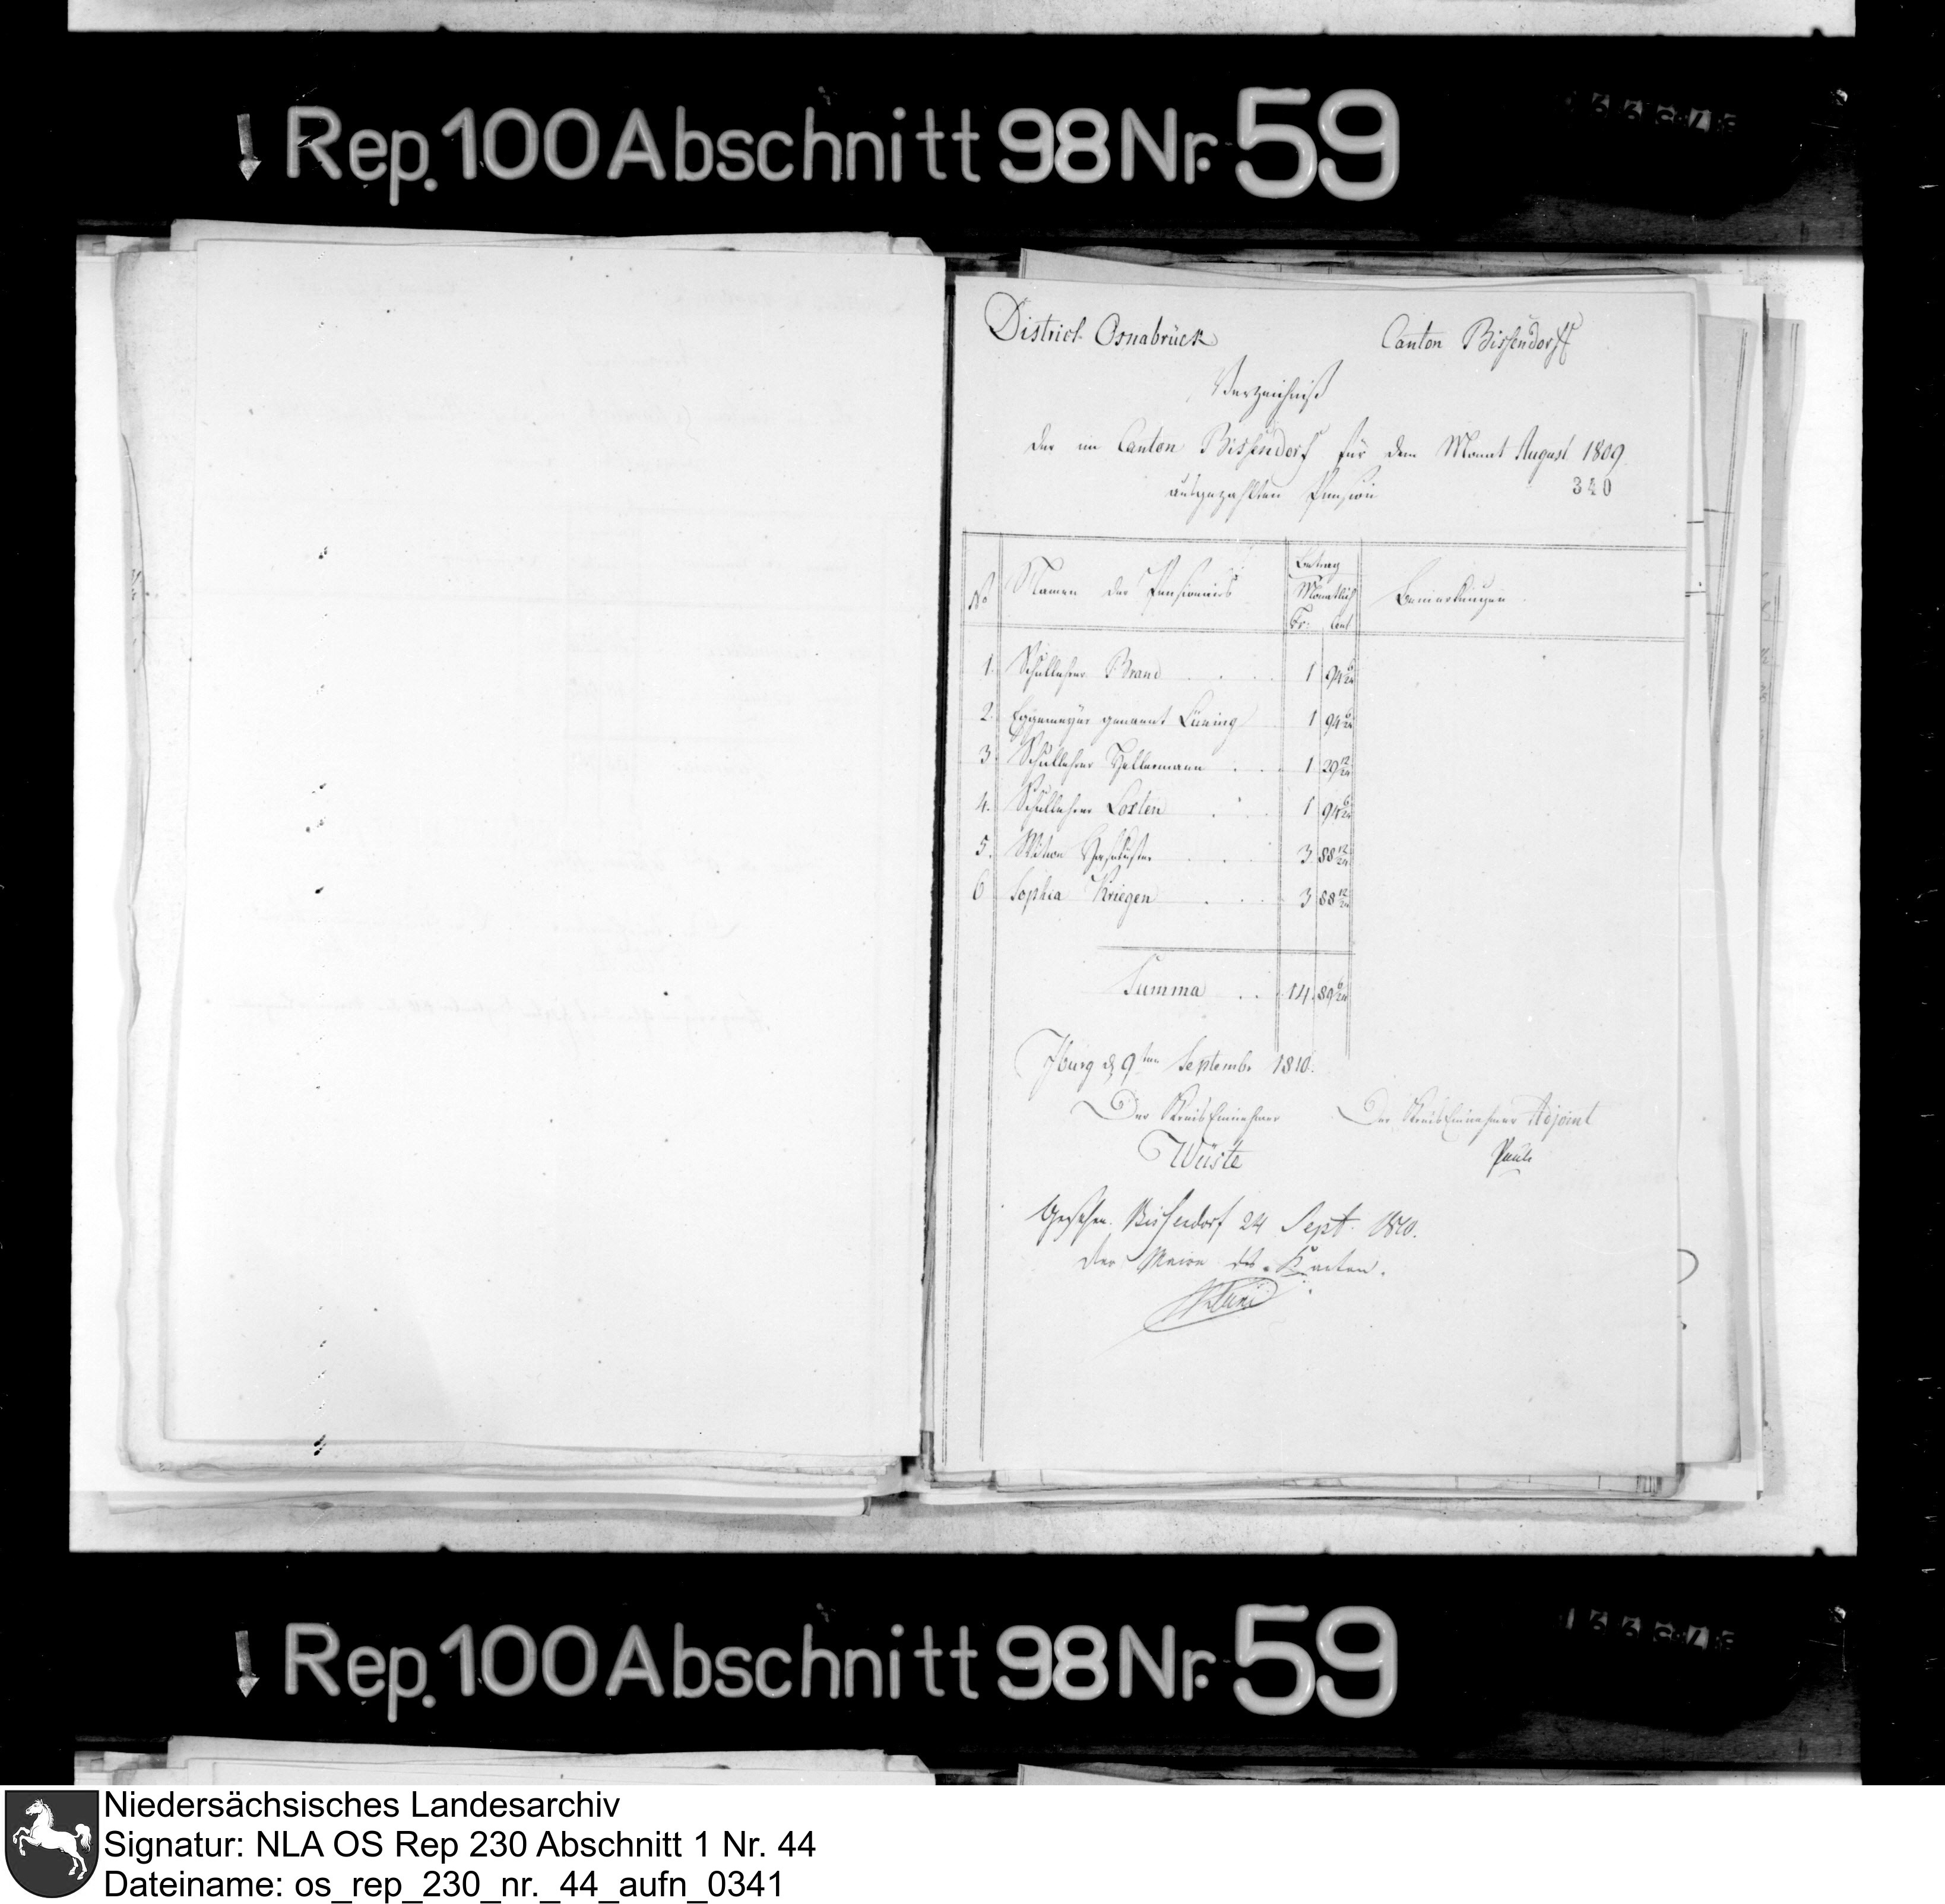 Rep. 100 Abschnitt 98 Nr. 59
District Osnabrück Canton Bissendorff
Verzeichniß
der im Canton Bissendorf für dem Monat August 1809
340
ausgezahlten Pension
No Namen der Pensionairs Betrag Monatlich Fr: Cent Bemerkungen
1. Schullehrer Brand 1 94 6/24
2. Eggemeyer genannt Lüning 1 94 6/24
3. Schullehrer Hellermann 1 29 12/24
4. Schullehrer Losten 1 94 6/24
5. Wittwe 3 88 12/24
6 Sophia Kriegen 3 88 12/24
Summa 14 89 6/24
Iburg d 9ten Septembr 1810.
Der KreisEinnehmer Der KreisEinnehmer Adjoint
Wüste Pauli
Gesehen. Bissendorf 24 Sept. 1810.
Der Maire des Kanton.
Rep. 100 Abschnitt 98 Nr. 59
Niedersächsisches Landesarchiv
Signatur: NLA OS Rep 230 Abschnitt 1 Nr. 44
Dateiname: os_rep_230_nr._44_aufn_0341